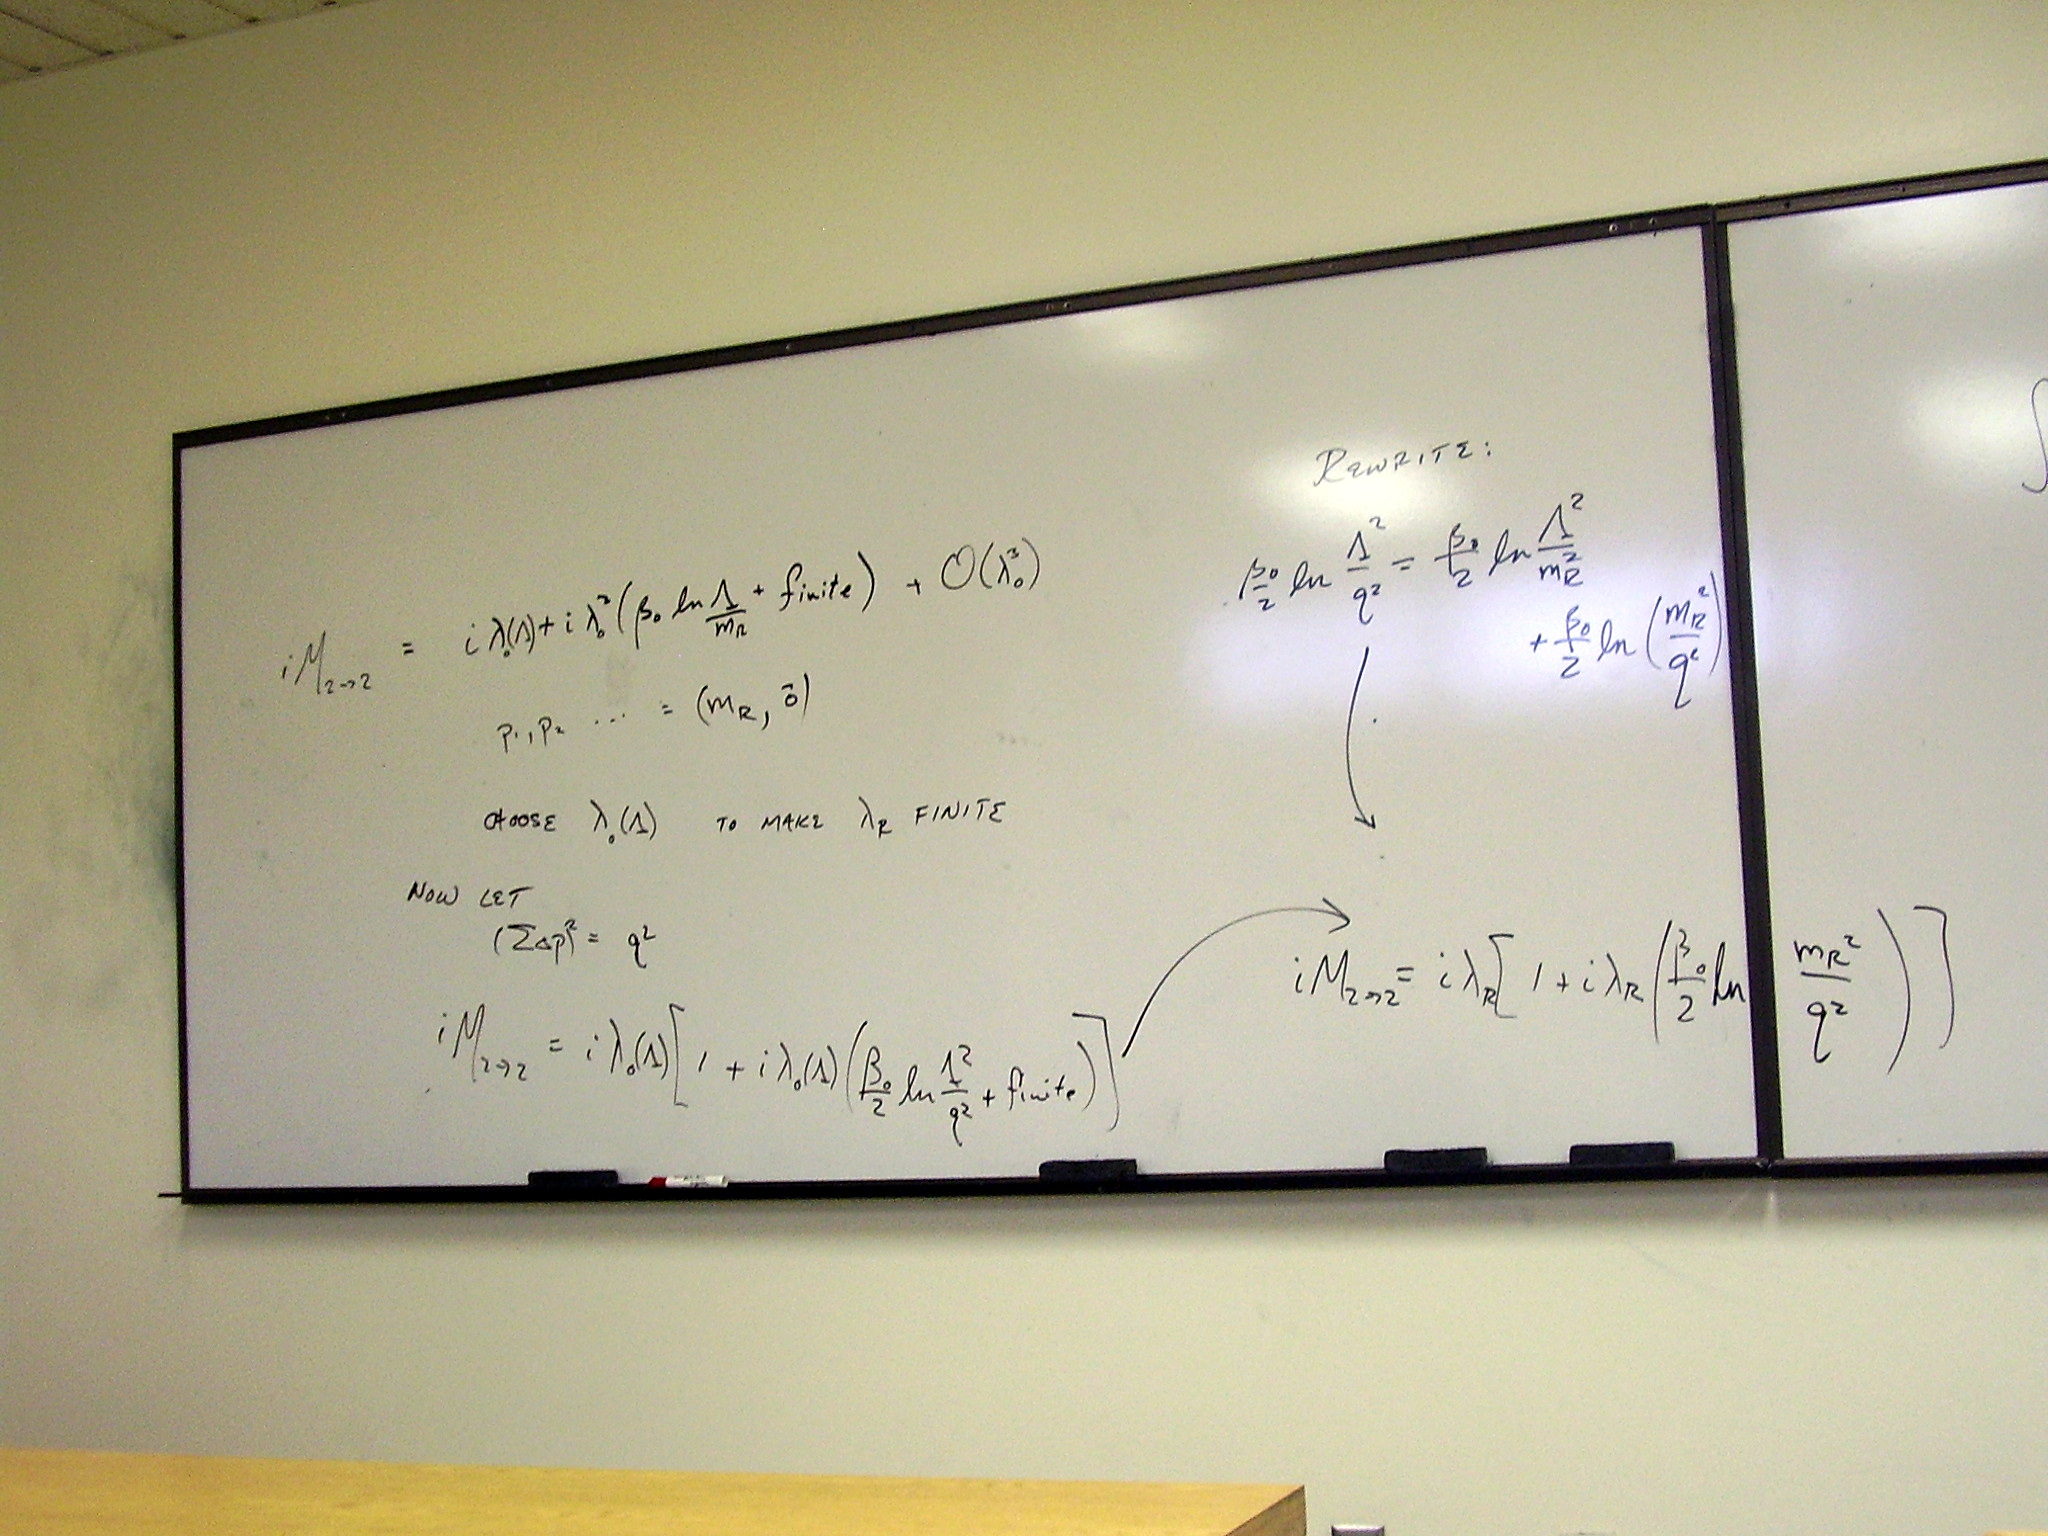 iM₂→₂ = iλ₀(Λ) + iλ₀²(β₀ ln Λ/m_R + finite) + O(λ₀³)
p₁, p₂ ... = (m_R, 0⃗)
CHOOSE λ₀(Λ) TO MAKE λ_R FINITE
NOW LET
(ΣΔp)² = q²
iM₂→₂ = iλ₀(Λ)[1 + iλ₀(Λ)(β₀/2 ln Λ²/q² + finite)]
REWRITE:
β₀/2 ln Λ²/q² = β₀/2 ln Λ²/m_R²
+ β₀/2 ln (m_R²/q²)
iM₂→₂ = iλ_R[1 + iλ_R(β₀/2 ln m_R²/q²)]
∫